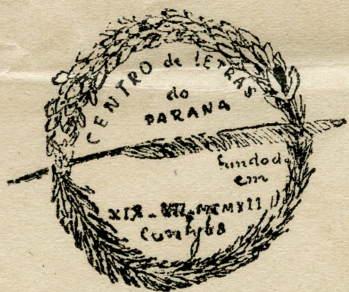 CENTRO de LETRAS
do
PARANA
fundado
em
XIX-XII-MCMXII
Curityba